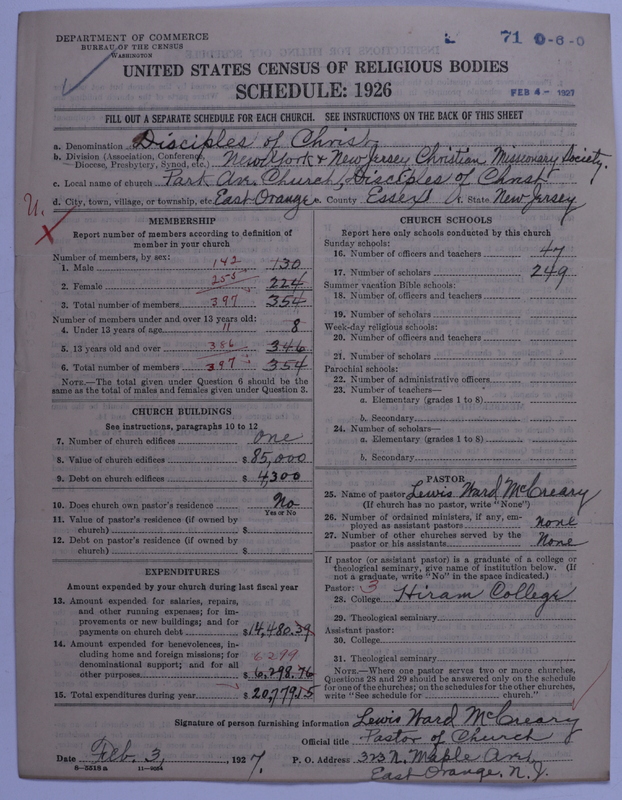 DEPARTMENT OF COMMERCE
BUREAU OF THE CENSUS
WASHINGTON
71 0-6-0
UNITED STATES CENSUS OF RELIGIOUS BODIES
SCHEDULE: 1926
FEB 4 - 1927
FILL OUT A SEPARATE SCHEDULE FOR EACH CHURCH. SEE INSTRUCTIONS ON THE BACK OF THIS SHEET
a. Denomination Disciples of Christ
b. Division (Association, Conference, Diocese, Presbytery, Synod, etc.) New York & New Jersey Christian Missionary Society.
c. Local name of church Park Ave. Church, Disciples of Christ
d. City, town, village, or township, etc. East Orange e. County Essex f. State New Jersey
U.
X
MEMBERSHIP
Report number of members according to definition of
member in your church
Number of members, by sex:
1. Male 142 130
2. Female 255 224
3. Total number of members 397 354
Number of members under and over 13 years old:
4. Under 13 years of age 11 8
5. 13 years old and over 386 346
6. Total number of members 397 354
NOTE.—The total given under Question 6 should be the
same as the total of males and females given under Question 3.
CHURCH BUILDINGS
See instructions, paragraphs 10 to 12
7. Number of church edifices one
8. Value of church edifices $85,000
9. Debt on church edifices $4,300
10. Does church own pastor's residence No
Yes or No
11. Value of pastor's residence (if owned by
church) $
12. Debt on pastor's residence (if owned by
church) $
EXPENDITURES
Amount expended by your church during last fiscal year
13. Amount expended for salaries, repairs,
and other running expenses; for im-
provements or new buildings; and for
payments on church debt $14,480.39
14. Amount expended for benevolences, in-
cluding home and foreign missions; for
denominational support; and for all
other purposes 6299 $6,298.76
15. Total expenditures during year $20,779.15
CHURCH SCHOOLS
Report here only schools conducted by this church
Sunday schools:
16. Number of officers and teachers 47
17. Number of scholars 249
Summer vacation Bible schools:
18. Number of officers and teachers
19. Number of scholars
Week-day religious schools:
20. Number of officers and teachers
21. Number of scholars
Parochial schools:
22. Number of administrative officers
23. Number of teachers—
a. Elementary (grades 1 to 8)
b. Secondary
24. Number of scholars—
a. Elementary (grades 1 to 8)
b. Secondary
PASTOR
25. Name of pastor Lewis Ward McCreary
(If church has no pastor, write "None")
26. Number of ordained ministers, if any, em-
ployed as assistant pastors none
27. Number of other churches served by the
pastor or his assistants None
If pastor (or assistant pastor) is a graduate of a college or
theological seminary, give name of institution below. (If
not a graduate, write "No" in the space indicated.)
Pastor: 3
28. College Hiram College
29. Theological seminary
Assistant pastor:
30. College
31. Theological seminary
NOTE.—Where one pastor serves two or more churches,
Questions 28 and 29 should be answered only on the schedule
for one of the churches; on the schedules for the other churches,
write "See schedule for ............ church."
Signature of person furnishing information Lewis Ward McCreary
Official title Pastor of Church
Date Feb. 3, 1927. P. O. Address 323 N. Maple Ave.
East Orange, N. J.
8-5518a 11-9034